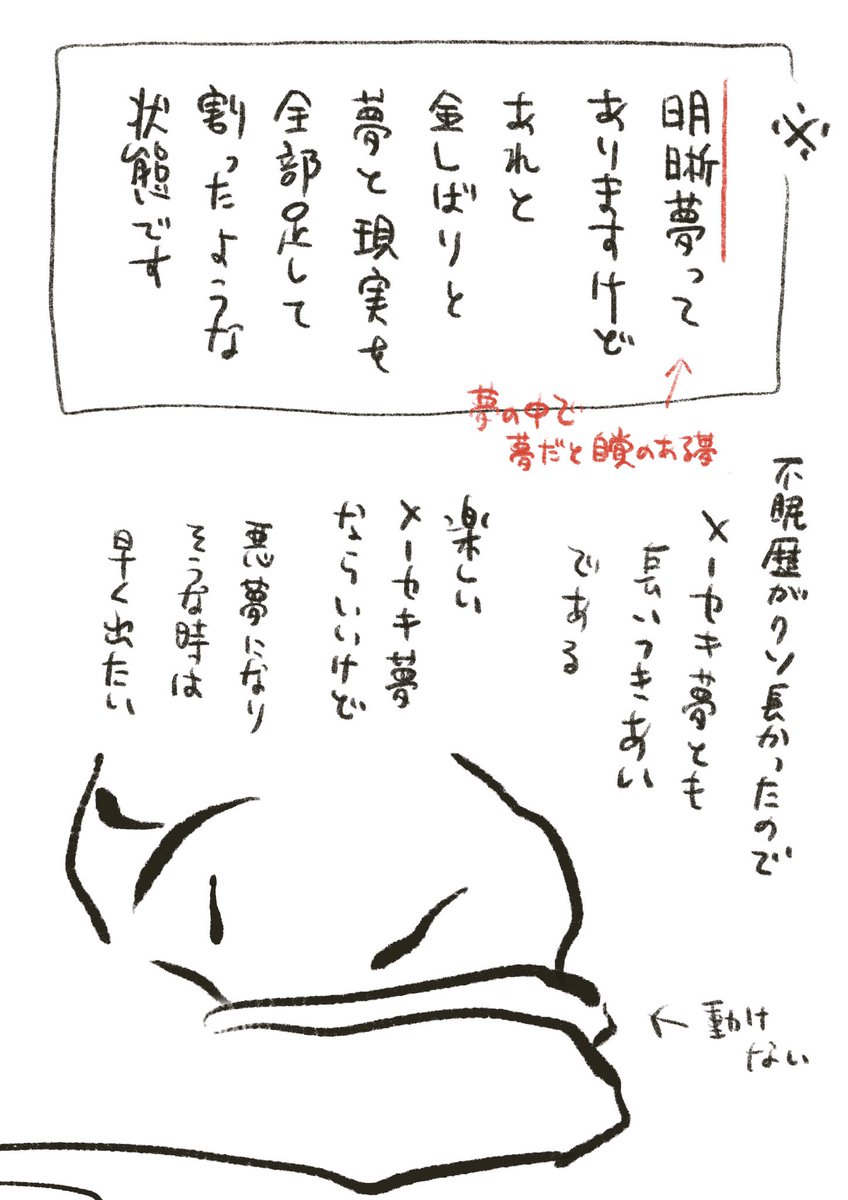 ※
明晰夢って
ありますけど
あれと
金しばりと
夢と現実を
全部足して
割ったような
状態です
夢の中で
夢だと自覚のある夢
不眠歴がクソ長かったので
メーセキ夢とも
長いつきあい
である
楽しい
メーセキ夢
ならいいけど
悪夢になり
そうな時は
早く出たい
動け
ない